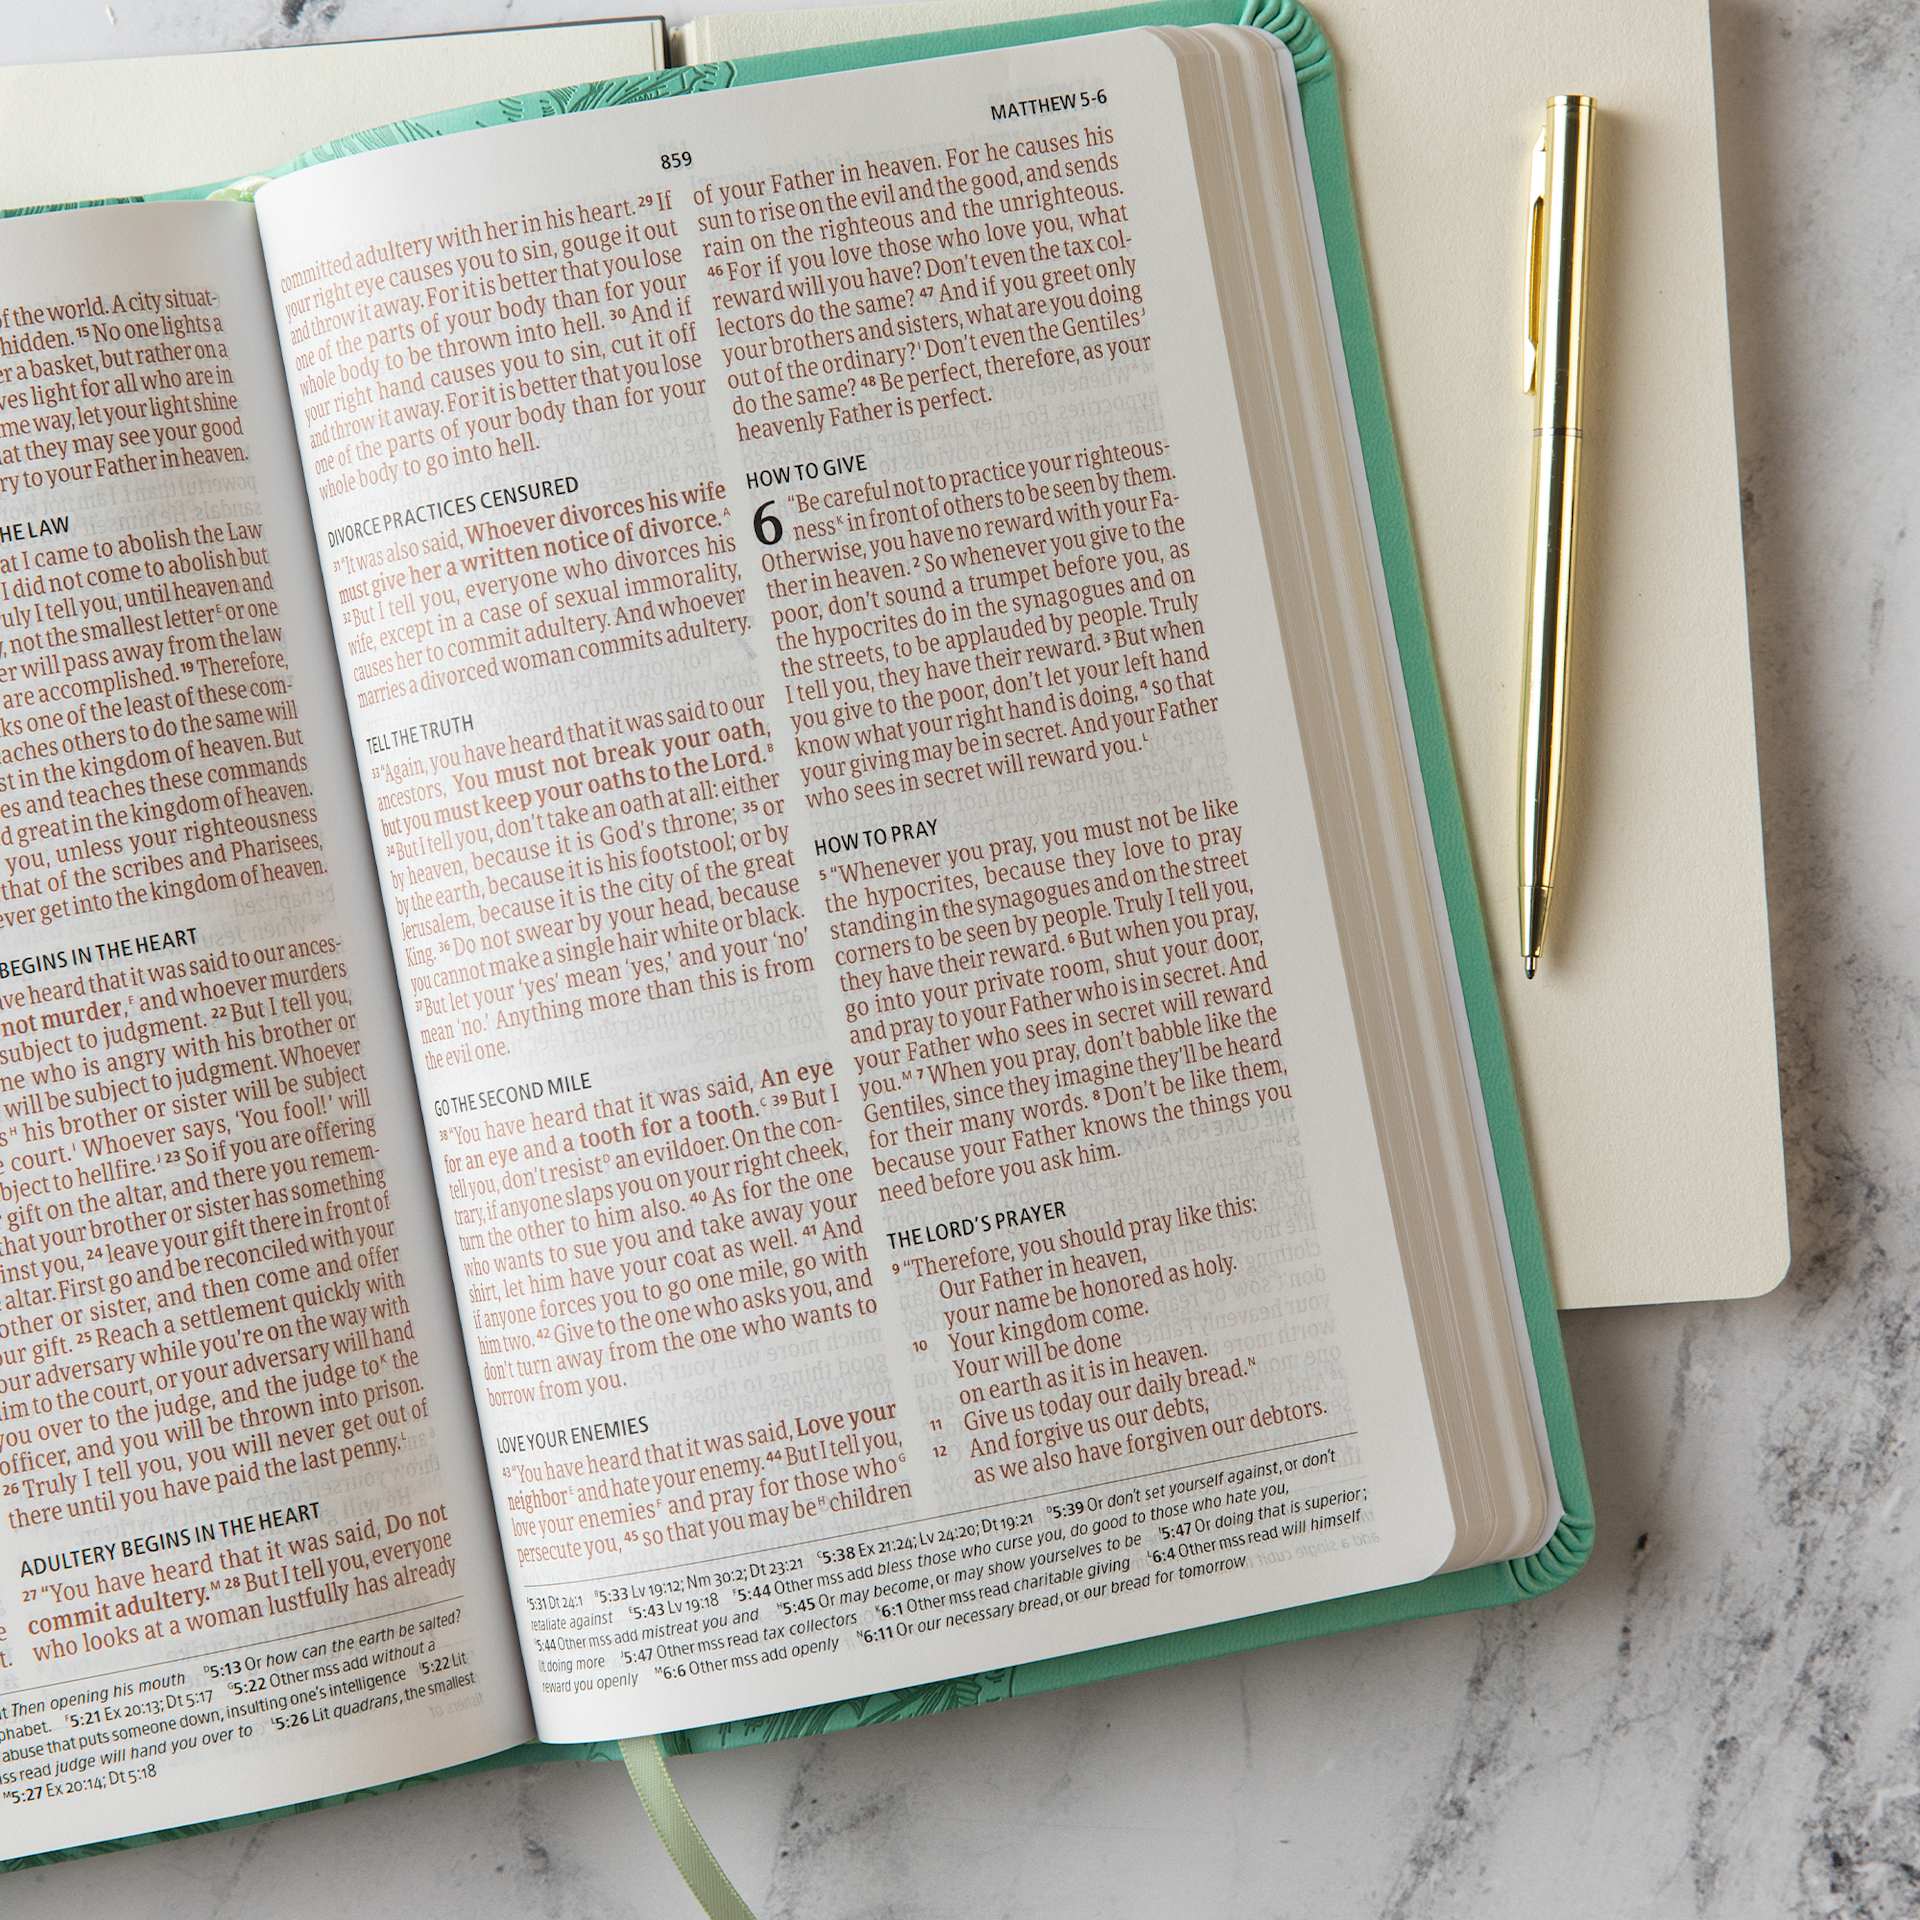 of the world. A city situat-
hidden. 15 No one lights a
a basket, but rather on a
light for all who are in
way, let your light shine
they may see your good
to your Father in heaven.
THE LAW
I came to abolish the Law
I did not come to abolish but
I tell you, until heaven and
not the smallest letterᴱ or one
will pass away from the law
are accomplished. 19 Therefore,
one of the least of these com-
others to do the same will
in the kingdom of heaven. But
and teaches these commands
great in the kingdom of heaven.
you, unless your righteousness
that of the scribes and Pharisees,
get into the kingdom of heaven.
BEGINS IN THE HEART
heard that it was said to our ances-
not murder,ᶠ and whoever murders
subject to judgment. 22 But I tell you,
who is angry with his brother or
will be subject to judgment. Whoever
his brother or sister will be subject
court.ᴵ Whoever says, 'You fool!' will
to hellfire.ᴶ 23 So if you are offering
gift on the altar, and there you remem-
that your brother or sister has something
you, 24 leave your gift there in front of
altar. First go and be reconciled with your
or sister, and then come and offer
gift. 25 Reach a settlement quickly with
adversary while you're on the way with
to the court, or your adversary will hand
you over to the judge, and the judge toᴷ the
officer, and you will be thrown into prison.
26 Truly I tell you, you will never get out of
there until you have paid the last penny.ᴸ
ADULTERY BEGINS IN THE HEART
27 "You have heard that it was said, Do not
commit adultery.ᴹ 28 But I tell you, everyone
who looks at a woman lustfully has already
Then opening his mouth ᴰ5:13 Or how can the earth be salted?
ᶠ5:21 Ex 20:13; Dt 5:17 ᴳ5:22 Other mss add without a
abuse that puts someone down, insulting one's intelligence ᴵ5:22 Lit
read judge will hand you over to ᴸ5:26 Lit quadrans, the smallest
ᴹ5:27 Ex 20:14; Dt 5:18
859
MATTHEW 5-6
committed adultery with her in his heart. 29 If
your right eye causes you to sin, gouge it out
and throw it away. For it is better that you lose
one of the parts of your body than for your
whole body to be thrown into hell. 30 And if
your right hand causes you to sin, cut it off
and throw it away. For it is better that you lose
one of the parts of your body than for your
whole body to go into hell.
DIVORCE PRACTICES CENSURED
31 "It was also said, Whoever divorces his wife
must give her a written notice of divorce.ᴬ
32 But I tell you, everyone who divorces his
wife, except in a case of sexual immorality,
causes her to commit adultery. And whoever
marries a divorced woman commits adultery.
TELL THE TRUTH
33 "Again, you have heard that it was said to our
ancestors, You must not break your oath,
but you must keep your oaths to the Lord.ᴮ
34 But I tell you, don't take an oath at all: either
by heaven, because it is God's throne; 35 or
by the earth, because it is his footstool; or by
Jerusalem, because it is the city of the great
King. 36 Do not swear by your head, because
you cannot make a single hair white or black.
37 But let your 'yes' mean 'yes,' and your 'no'
mean 'no.' Anything more than this is from
the evil one.
GO THE SECOND MILE
38 "You have heard that it was said, An eye
for an eye and a tooth for a tooth.ᶜ 39 But I
tell you, don't resistᴰ an evildoer. On the con-
trary, if anyone slaps you on your right cheek,
turn the other to him also. 40 As for the one
who wants to sue you and take away your
shirt, let him have your coat as well. 41 And
if anyone forces you to go one mile, go with
him two. 42 Give to the one who asks you, and
don't turn away from the one who wants to
borrow from you.
LOVE YOUR ENEMIES
43 "You have heard that it was said, Love your
neighborᴱ and hate your enemy. 44 But I tell you,
love your enemiesᶠ and pray for those whoᴳ
persecute you, 45 so that you may beᴴ children
of your Father in heaven. For he causes his
sun to rise on the evil and the good, and sends
rain on the righteous and the unrighteous.
46 For if you love those who love you, what
reward will you have? Don't even the tax col-
lectors do the same? 47 And if you greet only
your brothers and sisters, what are you doing
out of the ordinary?ᴵ Don't even the Gentilesᴶ
do the same? 48 Be perfect, therefore, as your
heavenly Father is perfect.
HOW TO GIVE
6 "Be careful not to practice your righteous-
nessᴷ in front of others to be seen by them.
Otherwise, you have no reward with your Fa-
ther in heaven. 2 So whenever you give to the
poor, don't sound a trumpet before you, as
the hypocrites do in the synagogues and on
the streets, to be applauded by people. Truly
I tell you, they have their reward. 3 But when
you give to the poor, don't let your left hand
know what your right hand is doing, 4 so that
your giving may be in secret. And your Father
who sees in secret will reward you.ᴸ
HOW TO PRAY
5 "Whenever you pray, you must not be like
the hypocrites, because they love to pray
standing in the synagogues and on the street
corners to be seen by people. Truly I tell you,
they have their reward. 6 But when you pray,
go into your private room, shut your door,
and pray to your Father who is in secret. And
your Father who sees in secret will reward
you.ᴹ 7 When you pray, don't babble like the
Gentiles, since they imagine they'll be heard
for their many words. 8 Don't be like them,
because your Father knows the things you
need before you ask him.
THE LORD'S PRAYER
9 "Therefore, you should pray like this:
Our Father in heaven,
your name be honored as holy.
10 Your kingdom come.
Your will be done
on earth as it is in heaven.
11 Give us today our daily bread.ᴺ
12 And forgive us our debts,
as we also have forgiven our debtors.
ᴬ5:31 Dt 24:1 ᴮ5:33 Lv 19:12; Nm 30:2; Dt 23:21 ᶜ5:38 Ex 21:24; Lv 24:20; Dt 19:21 ᴰ5:39 Or don't set yourself against, or don't
retaliate against ᴱ5:43 Lv 19:18 ᶠ5:44 Other mss add bless those who curse you, do good to those who hate you,
ᴳ5:44 Other mss add mistreat you and ᴴ5:45 Or may become, or may show yourselves to be ᴵ5:47 Or doing that is superior;
lit doing more ᴶ5:47 Other mss read tax collectors ᴷ6:1 Other mss read charitable giving ᴸ6:4 Other mss read will himself
reward you openly ᴹ6:6 Other mss add openly ᴺ6:11 Or our necessary bread, or our bread for tomorrow